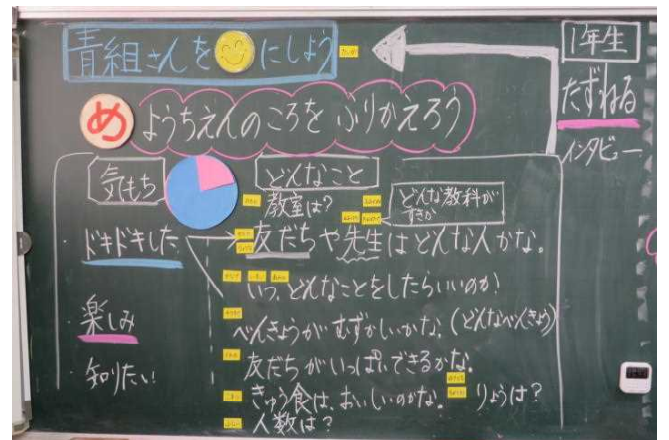 青組さんを にしよう
1年生
たずねる
インタビュー
め ようちえんのころを ふりかえろう
気もち
どんなこと
教室は?
どんな教科が
すきか
ドキドキした
友だちや先生はどんな人かな。
いつ、どんなことをしたらいいのか?
楽しみ
べんきょうがむずかしいかな。(どんなべんきょう)
友だちがいっぱいできるかな。
知りたい!
きゅう食は、おいしいのかな。
りょうは?
人数は?